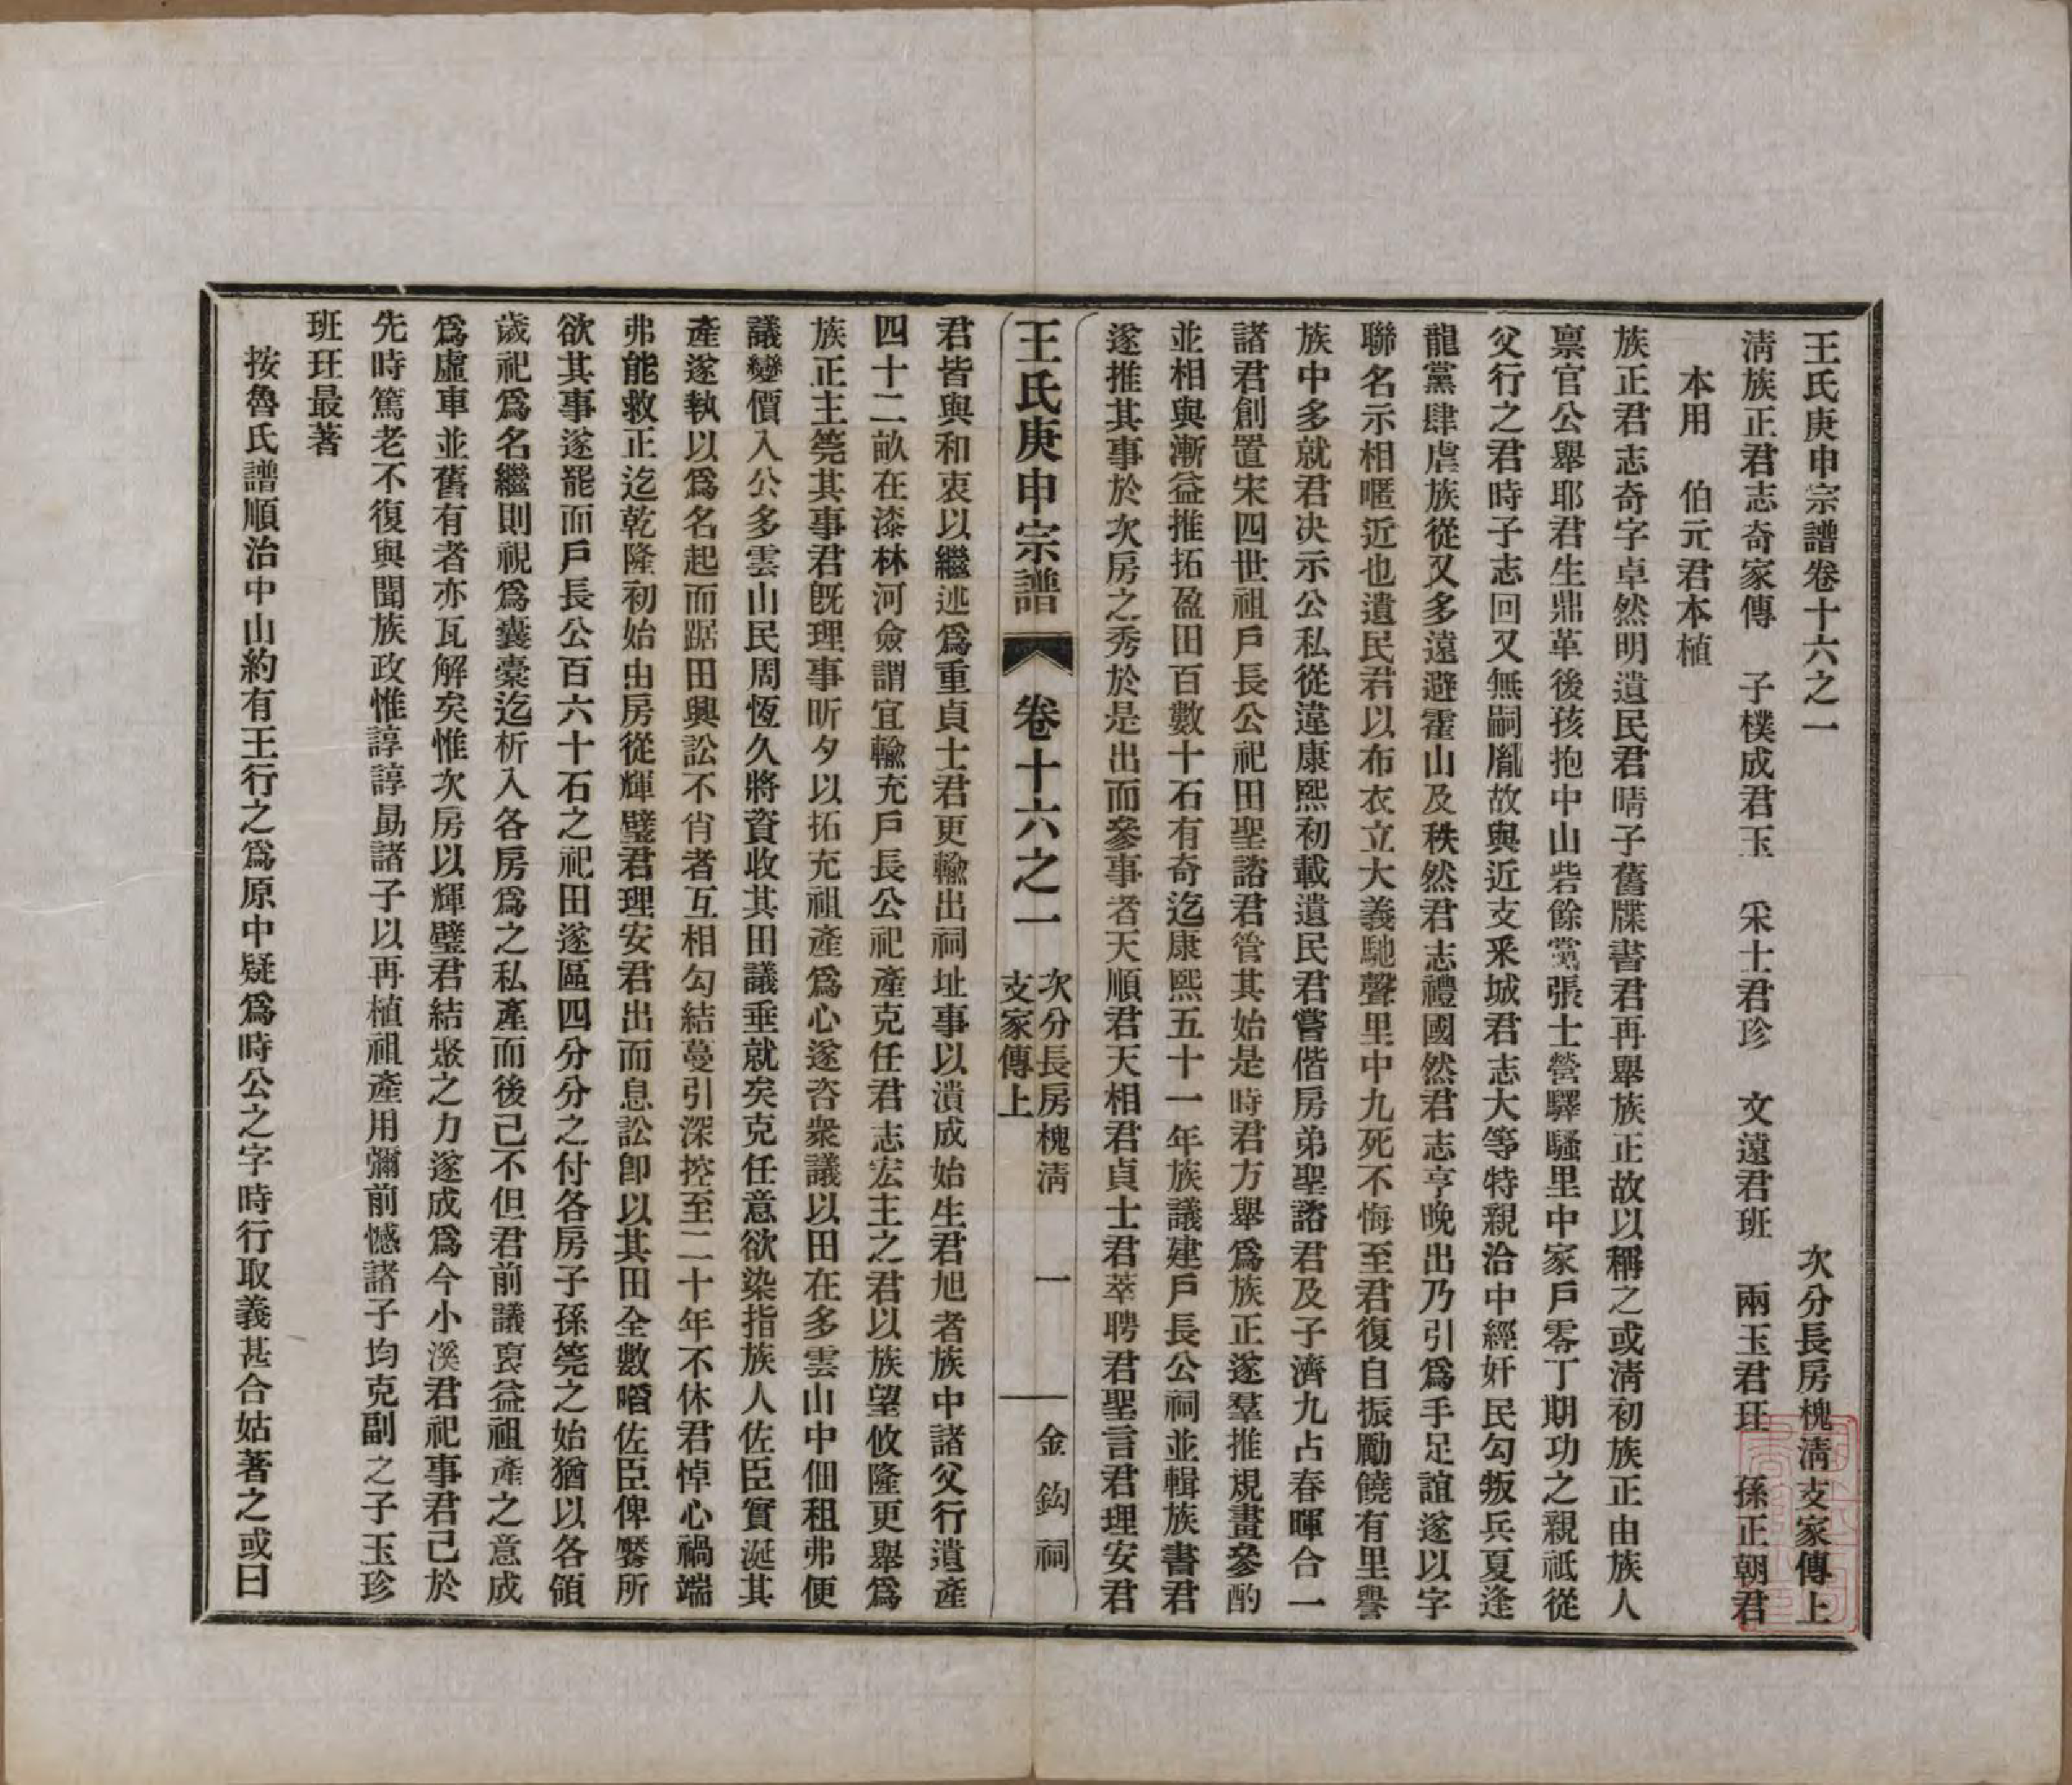 王氏庚申宗譜卷十六之一　次分長房槐淸支家傳上
淸族正君志奇家傳　子樸成君玉　采士君珍　文遠君班　兩玉君玨　孫正朝君
本用　伯元君本植
族正君志奇字卓然明遺民君晴子舊牒書君再舉族正故以稱之或淸初族正由族人
禀官公舉耶君生鼎革後孩抱中山砦餘黨張士營驛騷里中家戶零丁期功之親祇從
父行之君時子志回又無嗣胤故與近支釆城君志大等特親洽中經奸民勾叛兵夏逢
龍黨肆虐族從又多遠避霍山及秩然君志禮國然君志亨晚出乃引爲手足誼遂以字
聯名示相暱近也遺民君以布衣立大義馳聲里中九死不悔至君復自振勵饒有里譽
族中多就君决示公私從違康熙初載遺民君嘗偕房弟聖諮君及子濟九占春暉合一
諸君創置宋四世祖戶長公祀田聖諮君管其始是時君方舉爲族正遂羣推規畫參酌
並相與漸益推拓盈田百數十石有奇迄康熙五十一年族議建戶長公祠並輯族書君
遂推其事於次房之秀於是出而參事者天順君天相君貞士君萃聘君聖言君理安君
王氏庚申宗譜　卷十六之一　次分長房槐淸支家傳上　一　金鈎祠
君皆與和衷以繼述爲重貞士君更輸出祠址事以潰成始生君旭者族中諸父行遺產
四十二畝在漆林河僉謂宜輸充戶長公祀產克任君志宏主之君以族望攸隆更舉爲
族正主筦其事君旣理事昕夕以拓充祖產爲心遂咨衆議以田在多雲山中佃租弗便
議變價入公多雲山民周恆久將資收其田議垂就矣克任意欲染指族人佐臣實涎其
產遂執以爲名起而踞田興訟不肖者互相勾結蔓引深控至二十年不休君悼心禍端
弗能救正迄乾隆初始由房從輝璧君理安君出而息訟卽以其田全數噆佐臣俾饜所
欲其事遂罷而戶長公百六十石之祀田遂區四分分之付各房子孫筦之始猶以各領
歲祀爲名繼則視爲囊橐迄析入各房爲之私產而後已不但君前議裒益祖產之意成
爲虛車並舊有者亦瓦解矣惟次房以輝璧君結聚之力遂成爲今小溪君祀事君已於
先時篤老不復與聞族政惟諄諄勗諸子以再植祖產用彌前憾諸子均克副之子玉珍
班玨最著
按魯氏譜順治中山約有王行之爲原中疑爲時公之字時行取義甚合姑著之或曰